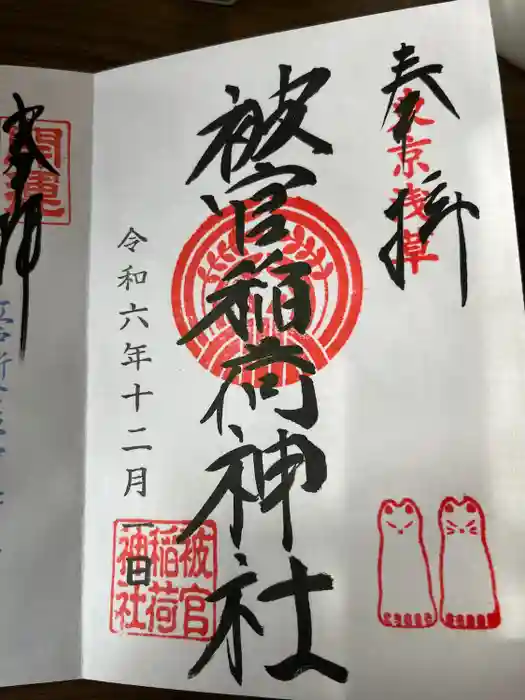 奉拝
東京浅草
被官稲荷神社
令和六年十二月一日
被官
稲荷
神社
開運
奉拝